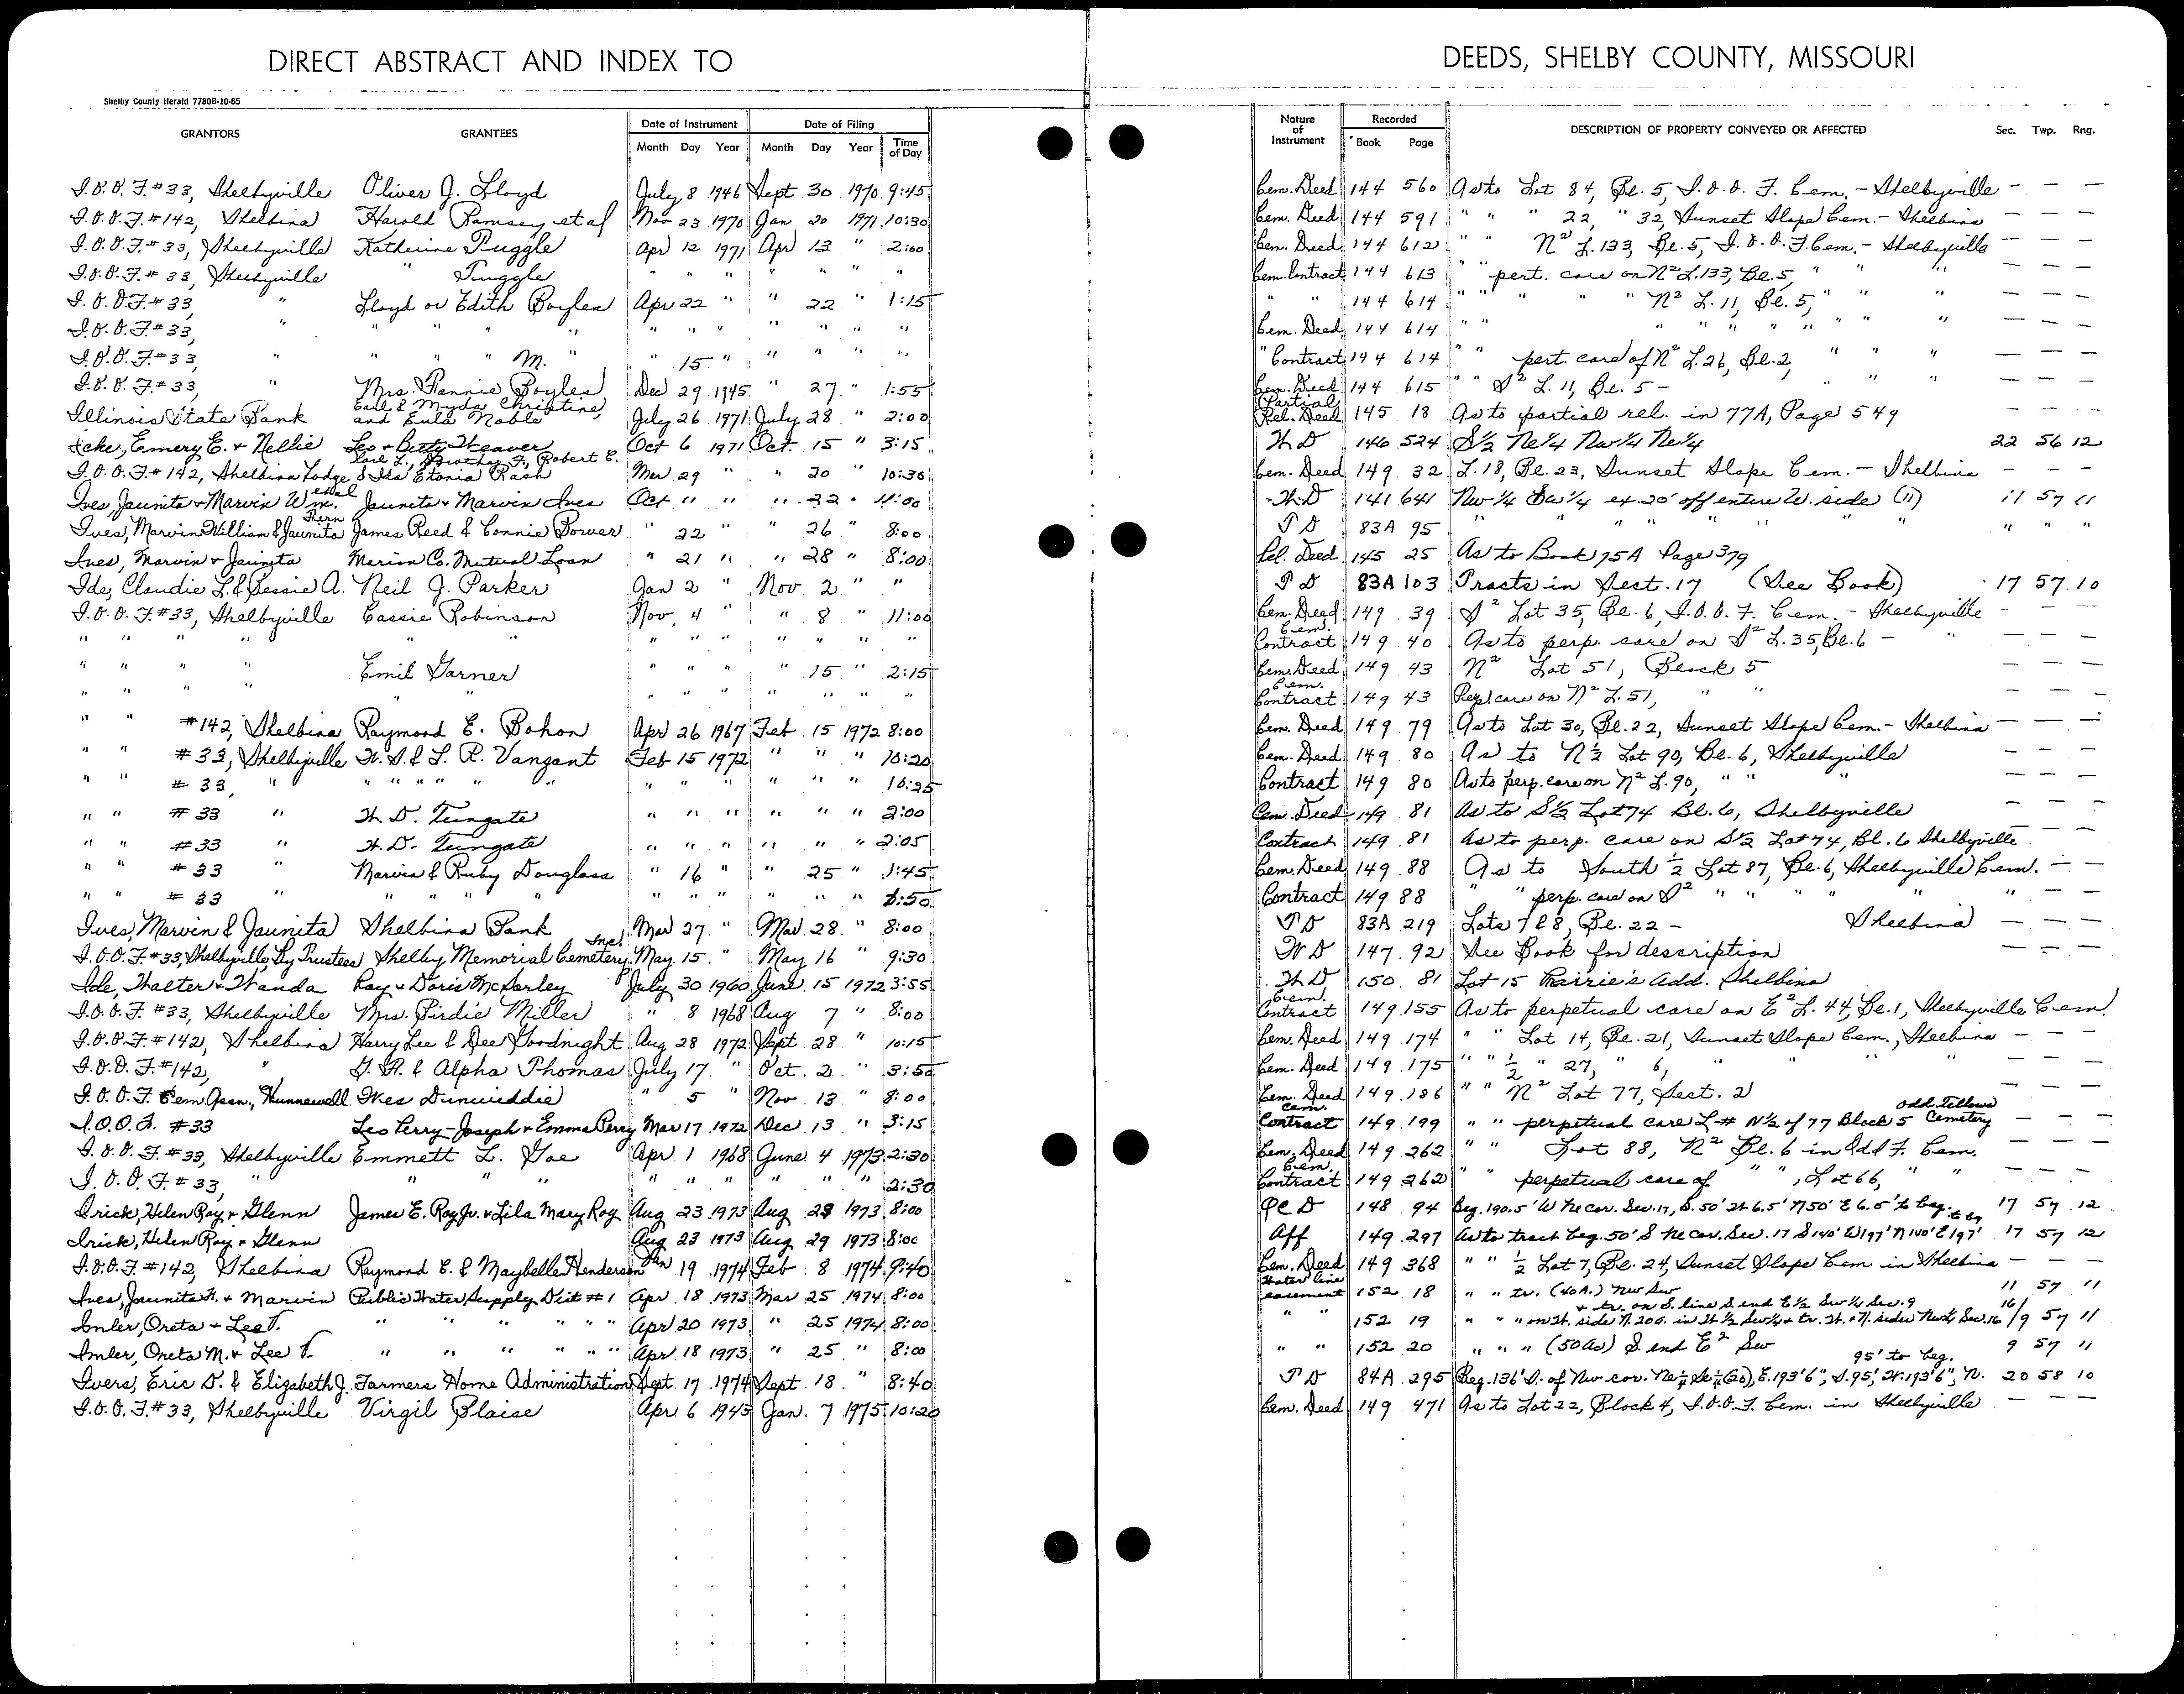 DIRECT ABSTRACT AND INDEX TO DEEDS, SHELBY COUNTY, MISSOURI
Shelby County Herald 7780B-10-65
GRANTORS GRANTEES Date of Instrument Date of Filing Nature of Instrument Recorded DESCRIPTION OF PROPERTY CONVEYED OR AFFECTED Sec. Twp. Rng.
Month Day Year Month Day Year Time of Day Book Page
I.O.O.F. #33, Shelbyville Oliver J. Lloyd July 8 1946 Sept 30 1970 9:45 Cem. Deed 144 560 As to Lot 84, Bl. 5, I.O.O.F. Cem. - Shelbyville - - -
I.O.O.F. #142, Shelbina Harold Ramsey et al Nov 23 1970 Jan 20 1971 10:30 Cem. Deed 144 591 " " " 22, " 32, Sunset Slope Cem. - Shelbina - - -
I.O.O.F. #33, Shelbyville Katherine Tuggle Apr 12 1971 Apr 13 " 2:00 Cem. Deed 144 612 " " N² L.133, Bl. 5, I.O.O.F. Cem. - Shelbyville - - -
I.O.O.F. #33, Shelbyville " Tuggle " " " " " " " Cem. Contract 144 613 " " pert. care on N² L.133, Bl. 5, " " " - - -
I.O.O.F. #33, " Lloyd or Edith Boyles Apr 22 " " 22 " 1:15 " " 144 614 " " " " " N² L. 11, Bl. 5, " " " - - -
I.O.O.F. #33, " " " " " " " " " " " " Cem. Deed 144 614 " " " " " " " " " " - - -
I.O.O.F. #33, " " " " M. " " 15 " " " " " " Contract 144 614 " " pert. care of N² L. 26, Bl. 2, " " " - - -
I.O.O.F. #33, " Mrs. Fannie Boyles Dec 29 1945 " 27 " 1:55 Cem. Deed 144 615 " " S² L. 11, Bl. 5 - " " " - - -
Illinois State Bank Earl & Myda Christine, and Eula Noble July 26 1971 July 28 " 2:00 Partial Rel. Deed 145 18 As to partial rel. in 77A, Page 549 - - -
Icke, Emery E. + Nellie Leo + Betty Weaver Oct 6 1971 Oct. 15 " 3:15 W D 146 524 S½ Ne¼ Nw¼ Ne¼ 22 56 12
I.O.O.F. #142, Shelbina Lodge Earl L., Dorothy F., Robert E. & Ida Etonia Rash Mar 29 " " 20 " 10:30 Cem. Deed 149 32 L. 18, Bl. 23, Sunset Slope Cem. - Shelbina - - -
Ives, Jaunita + Marvin Wm. et al Jaunita + Marvin Ives Oct " " " 22 " 11:00 W D 141 641 Nw ¼ Sw ¼ ex. 20' off entire W. side (11) 11 57 11
Ives, Marvin William & Jaunita Fern James Reed & Connie Bower " 22 " 26 " 8:00 T D 83A 95 " " " " " " " " " "
Ives, Marvin + Jaunita Marion Co. Mutual Loan " 21 " " 28 " 8:00 Rel. Deed 145 25 As to Book 75A Page 379
Ide, Claudie L. & Bessie A. Neil J. Parker Jan 2 " Nov 2 " " T D 83A 103 Tracts in Sect. 17 (See Book) 17 57 10
I.O.O.F. #33, Shelbyville Cassie Robinson Nov. 4 " " 8 " 11:00 Cem. Deed 149 39 S² Lot 35, Bl. 6, I.O.O.F. Cem. - Shelbyville - - -
" " " " " " " " " " " " Cem. Contract 149 40 As to perp. care on S² L. 35, Bl. 6 - " - - -
" " " " Emil Garner " " " " 15 " 2:15 Cem. Deed 149 43 N² Lot 51, Block 5 - - -
" " " " " " " " " " " " " Cem. Contract 149 43 Perp. care on N² L. 51, " " - - -
" " #142, Shelbina Raymond E. Bohon Apr 26 1967 Feb 15 1972 8:00 Cem. Deed 149 79 As to Lot 30, Bl. 22, Sunset Slope Cem. - Shelbina - - -
" " #33, Shelbyville W. S. & L. R. Vangant Feb 15 1972 " " " 10:20 Cem. Deed 149 80 As to N½ Lot 90, Bl. 6, Shelbyville - - -
" " #33, " " " " " " " " " " " 10:25 Contract 149 80 As to perp. care on N² L. 90, " " " - - -
" " #33 " W. D. Tungate " " " " " " 2:00 Cem. Deed 149 81 As to S½ Lot 74 Bl. 6, Shelbyville - - -
" " #33 " W. D. Tungate " " " " " " 2:05 Contract 149 81 As to perp. care on S½ Lot 74, Bl. 6 Shelbyville - - -
" " #33 " Marvin & Ruby Douglass " 16 " " 25 " 1:45 Cem. Deed 149 88 As to South ½ Lot 87, Bl. 6, Shelbyville Cem. - -
" " #33 " " " " " " " " " " " 1:50 Contract 149 88 " " perp. care on S² " " " " " " - -
Ives, Marvin & Jaunita Shelbina Bank Mar 27 " Mar. 28 " 8:00 T D 83A 219 Lots 7 & 8, Bl. 22 - Shelbina - - -
I.O.O.F. #33, Shelbyville, By Trustees Shelby Memorial Cemetery Inc. May 15 " May 16 " 9:30 W D 147 92 See Book for description - - -
Ide, Walter + Wanda Ray + Doris McSorley July 30 1960 June 15 1972 3:55 W D 150 81 Lot 15 Prairie's Add. Shelbina
I.O.O.F. #33, Shelbyville Mrs. Birdie Miller " 8 1968 Aug 7 " 8:00 Cem. Contract 149 155 As to perpetual care on E² L. 44, Bl. 1, Shelbyville Cem.
I.O.O.F. #142, Shelbina Harry Lee & Dee Goodnight Aug 28 1972 Sept 28 " 10:15 Cem. Deed 149 174 " " Lot 14, Bl. 21, Sunset Slope Cem., Shelbina - - -
I.O.O.F. #142, " G. R. & Alpha Thomas July 17 " Oct. 2 " 3:50 Cem. Deed 149 175 " " ½ " 27, " 6, " " " " - - -
I.O.O.F. Cem Assn., Hunnewell Wes Dunwiddie " 5 " Nov. 13 " 8:00 Cem. Deed 149 186 " " N² Lot 77, Sect. 2 - - -
I.O.O.F. #33 Leo Perry - Joseph + Emma Perry Mar 17 1972 Dec 13 " 3:15 Cem. Contract 149 199 " " perpetual care L # N½ of 77 Block 5 Odd Fellows Cemetery - - -
I.O.O.F. #33, Shelbyville Emmett L. Goe Apr. 1 1968 June 4 1973 2:30 Cem. Deed 149 262 " " Lot 88, N² Bl. 6 in Odd F. Cem. - - -
I.O.O.F. #33, " " " " " " " " " " 2:30 Cem. Contract 149 262 " " perpetual care of " ", Lot 66, " " - - -
Irick, Helen Roy + Glenn James E. Roy Jr. + Lila Mary Roy Aug 23 1973 Aug 29 1973 8:00 Qc D 148 94 Beg. 190.5' W Ne cor. Sec. 17, S. 50' W 6.5' N 50' E 6.5' to beg. 17 57 12
Irick, Helen Roy + Glenn Aug 23 1973 Aug 29 1973 8:00 Aff 149 297 As to tract beg. 50' S Ne cor. Sec. 17 S 140' W 197' N 140' E 197' to beg 17 57 12
I.O.O.F. #142, Shelbina Raymond E. & Maybelle Henderson Jan 19 1974 Feb 8 1974 9:40 Cem. Deed 149 368 " " ½ Lot 7, Bl. 24, Sunset Slope Cem in Shelbina - - -
Ives, Jaunita F. + Marvin Public Water Supply Dist #1 Apr. 18 1973 Mar 25 1974 8:00 Water line easement 152 18 " " tr. (40A.) Nw Sw 11 57 11
Imler, Oreta + Lee T. " " " " " " Apr 20 1973 " 25 1974 8:00 " " 152 19 " " " on W. side N. 20a. in W ½ Sw¼ + tr. W. + N. sides Nw¼ Sec. 16 + tr. on S. line S. end E½ Sw ¼ Sec. 9 16/9 57 11
Imler, Oreta M. + Lee T. " " " " " " Apr. 18 1973 " 25 " 8:00 " " 152 20 " " " (50 as) S. end E² Sw 9 57 11
Ivers, Eric D. & Elizabeth J. Farmers Home Administration Sept. 17 1974 Sept. 18 " 8:40 T D 84A 295 Beg. 136' S. of Nw cor. Ne¼ Se¼ (20), E. 193'6", S. 95', W. 193'6", N. 95' to beg. 20 58 10
I.O.O.F. #33, Shelbyville Virgil Blaise Apr. 6 1943 Jan. 7 1975 10:20 Cem. Deed 149 471 As to Lot 22, Block 4, I.O.O.F. Cem. in Shelbyville - - -